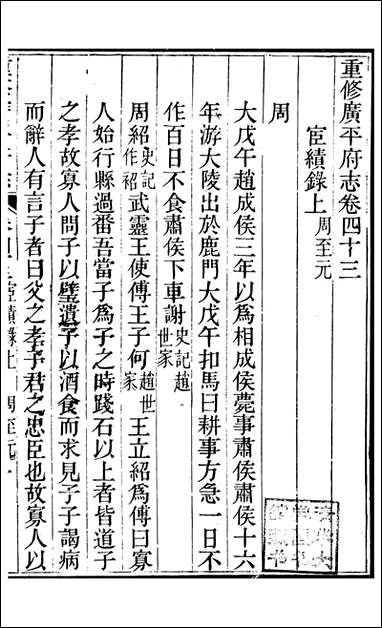 重修廣平府志卷四十三
宦績錄上 周至元
周
大戊午趙成侯三年以爲相成侯薨事肅侯肅侯十六
年游大陵出於鹿門大戊午扣馬曰耕事方急一日不
作百日不食肅侯下車謝史記趙世家
周紹史記作袑武靈王使傅王子何趙世家王立紹爲傅曰寡
人始行縣過番吾當子爲子之時踐石以上者皆道子
之孝故寡人問子以璧遺子以酒食而求見子子謁病
而辭人有言子者曰父之孝子君之忠臣也故寡人以
宦績錄上 周至元 一